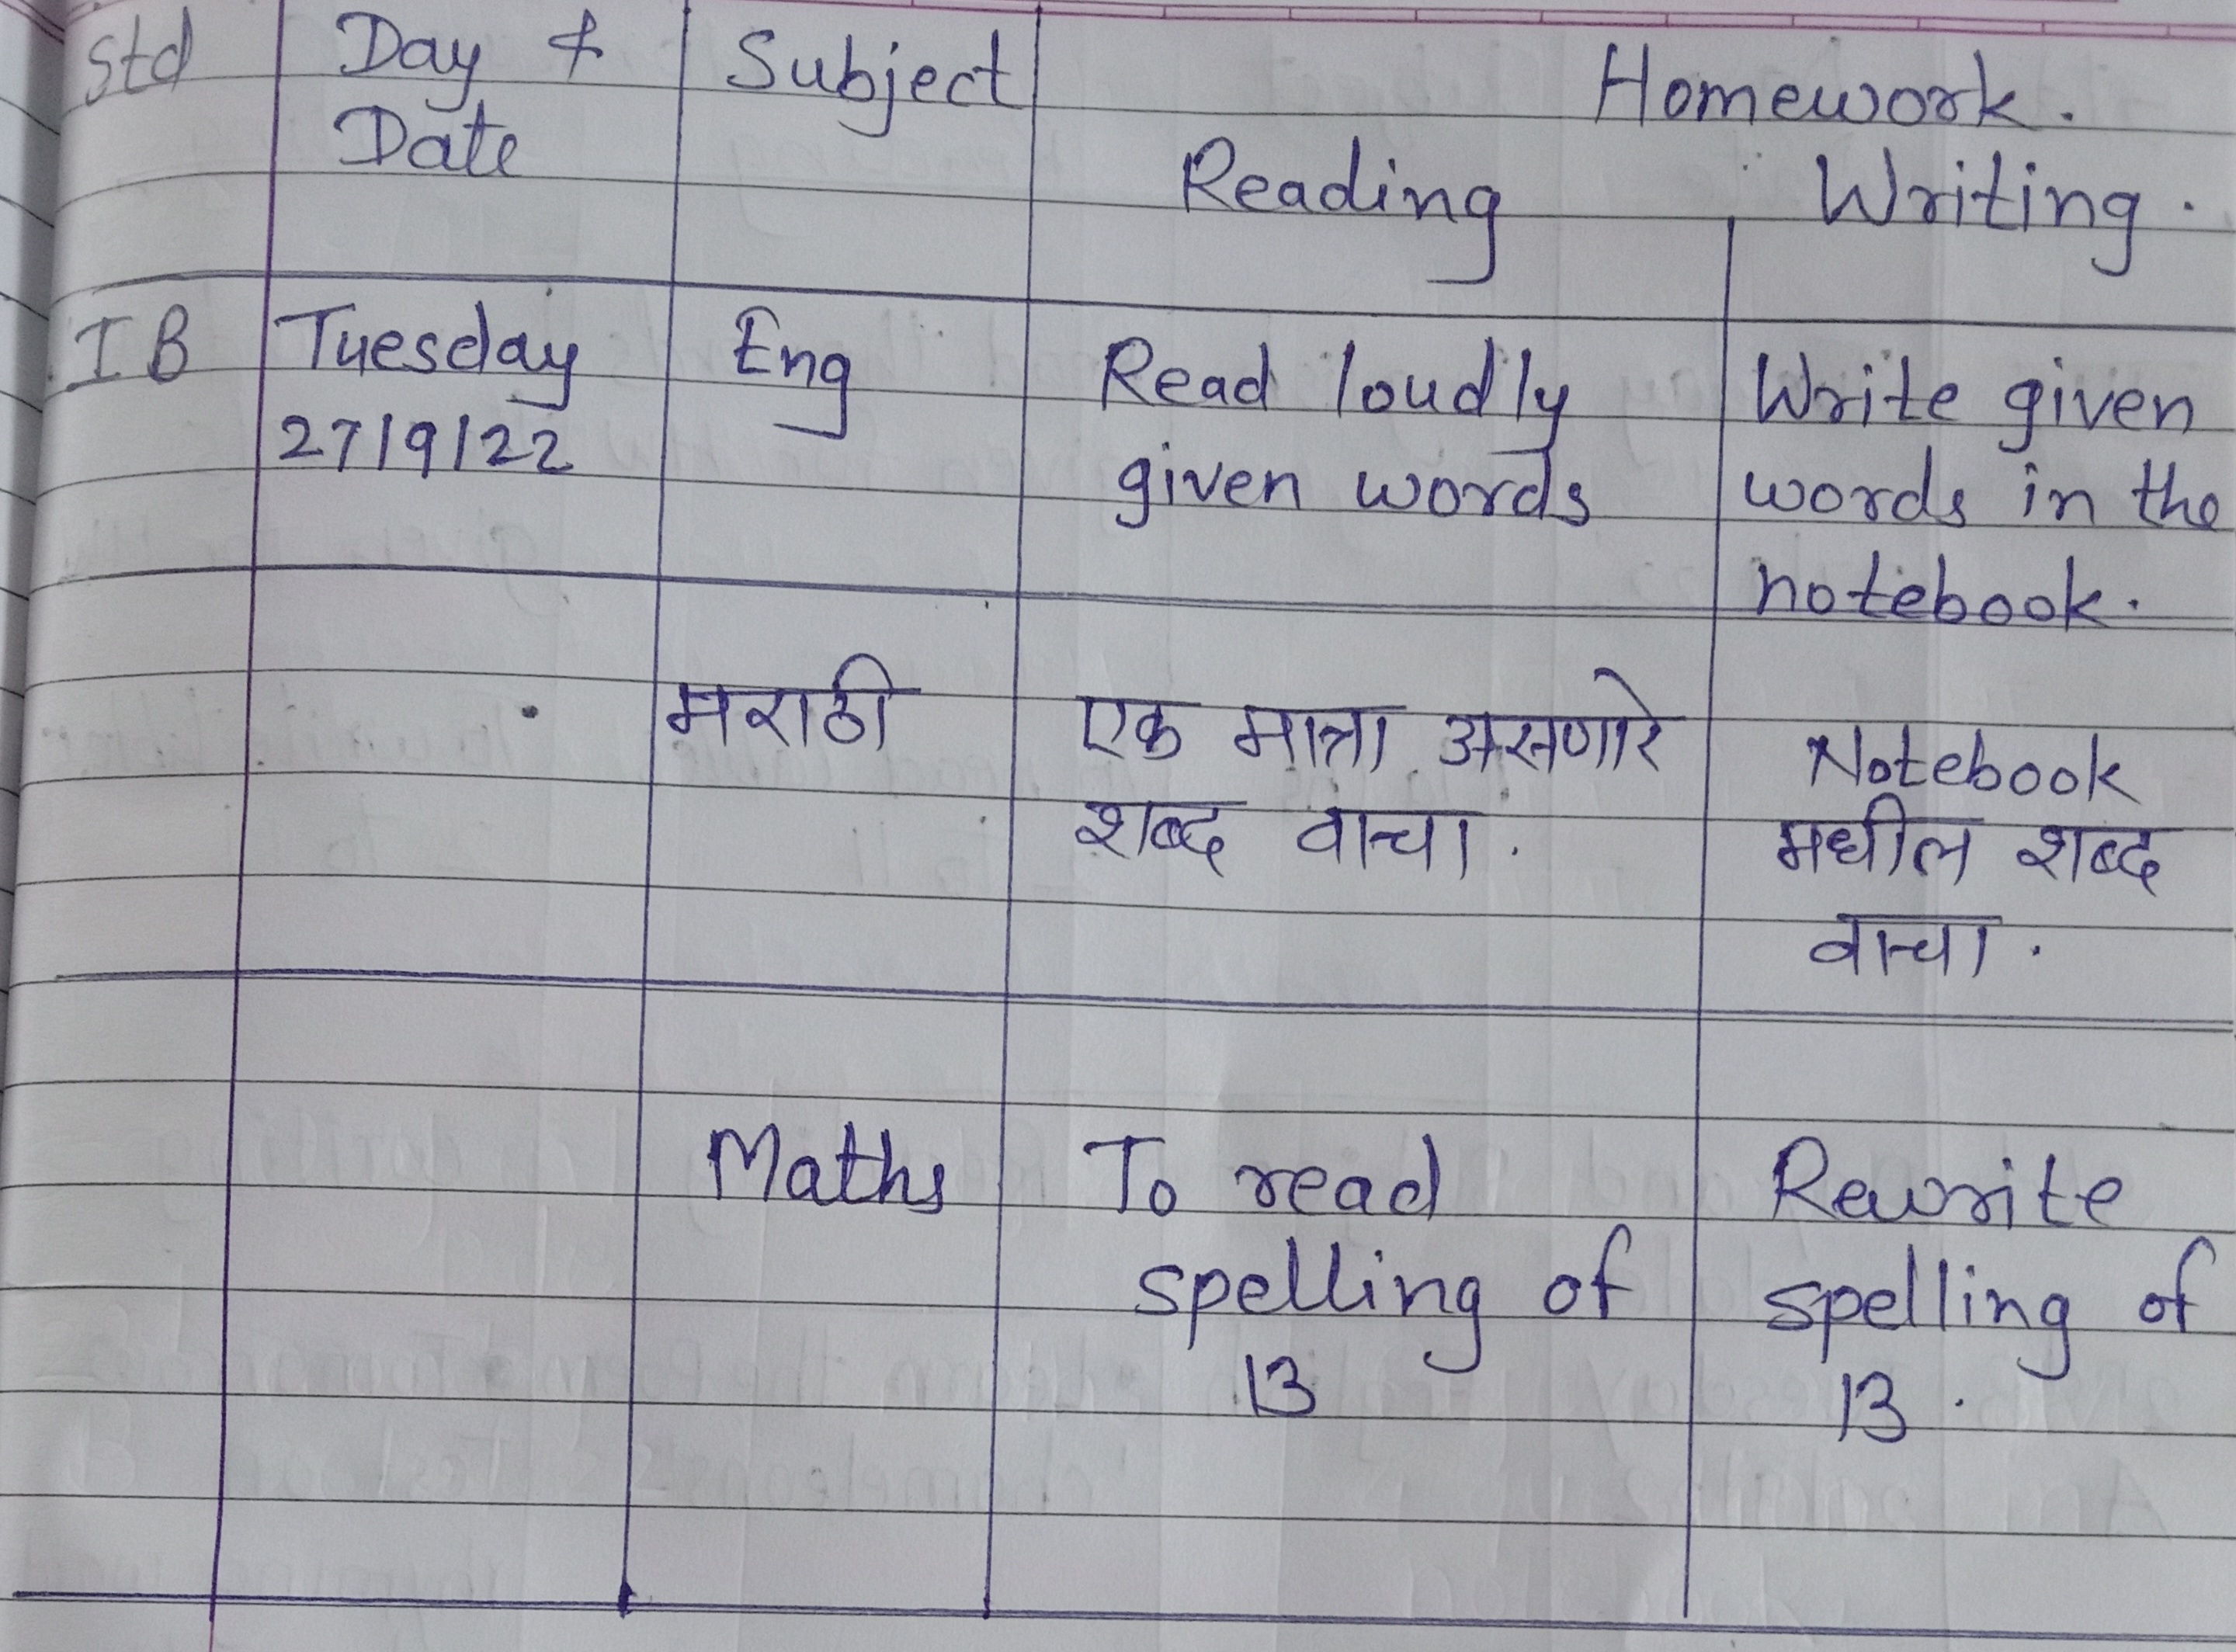 Std Day & Subject Homework.
Date Reading Writing.
I B Tuesday Eng Read loudly Write given
27/9/22 given words words in the
notebook.
मराठी एक मात्रा असणारे Notebook
शब्द वाचा. मधील शब्द
वाचा.
Maths To read Rewrite
spelling of spelling of
13 13.